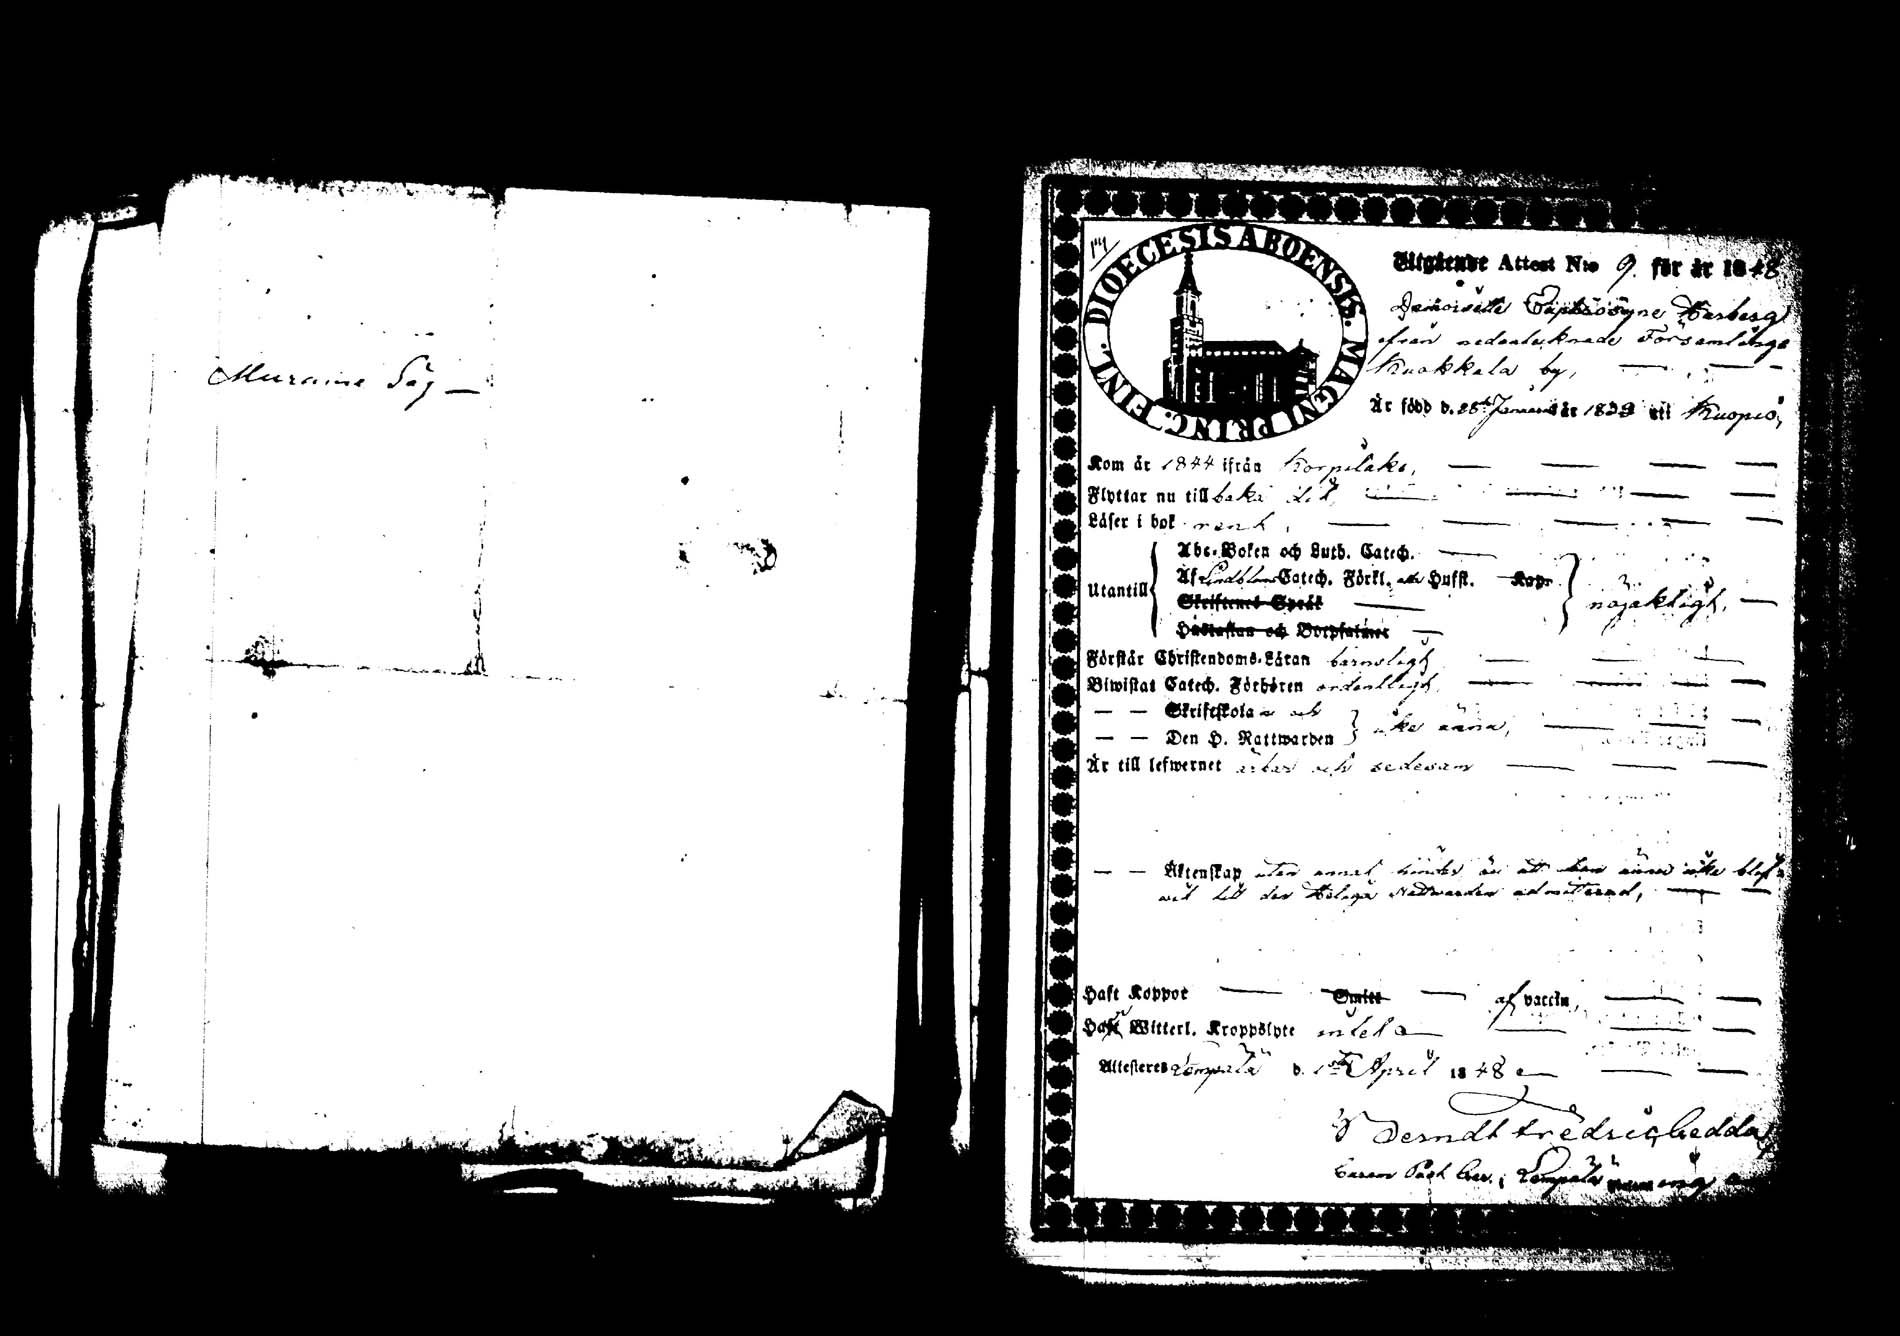 Muraine Säg —
DIOECESIS ABOENSIS. MAGNI PRINC. FINL.
Utgående Attest N:o 9. för år 1848
Demoiselle Euphrosyne Harberg
ifrån nedantecknade Församlings
Kuokkala by,
Är född d. 28 Januarii år 1833 uti Kuopio,
Kom år 1844 ifrån Korpilaks,
Flyttar nu tillbaka dit,
Läser i bok rent,
Utantill
Abc-Boken och Luth. Catech.
Af Lindbloms Catech. Förkl. eller Husst. Kap.
Skriftenes Språk
nöjaktigt,
Hustaflan och Botpsalmer
Förstår Christendoms-Läran barnsligt
Biwistat Catech. Förhören ordentligt,
— — Skriftskola och
— — Den H. Nattwarden
icke ännu,
Är till lefwernet ärbar och sedesam
— — Äktenskap utan annat hinder än att hon ännu icke blif-
vit till den Heliga Nattwarden admitterad,
Haft Koppor — Smitt — af vaccin,
Haft Witterl. Kroppslyte intet
Attesteras Lempälä d. 1 April 1848
Berndt Fredric Gedda
Lempälä